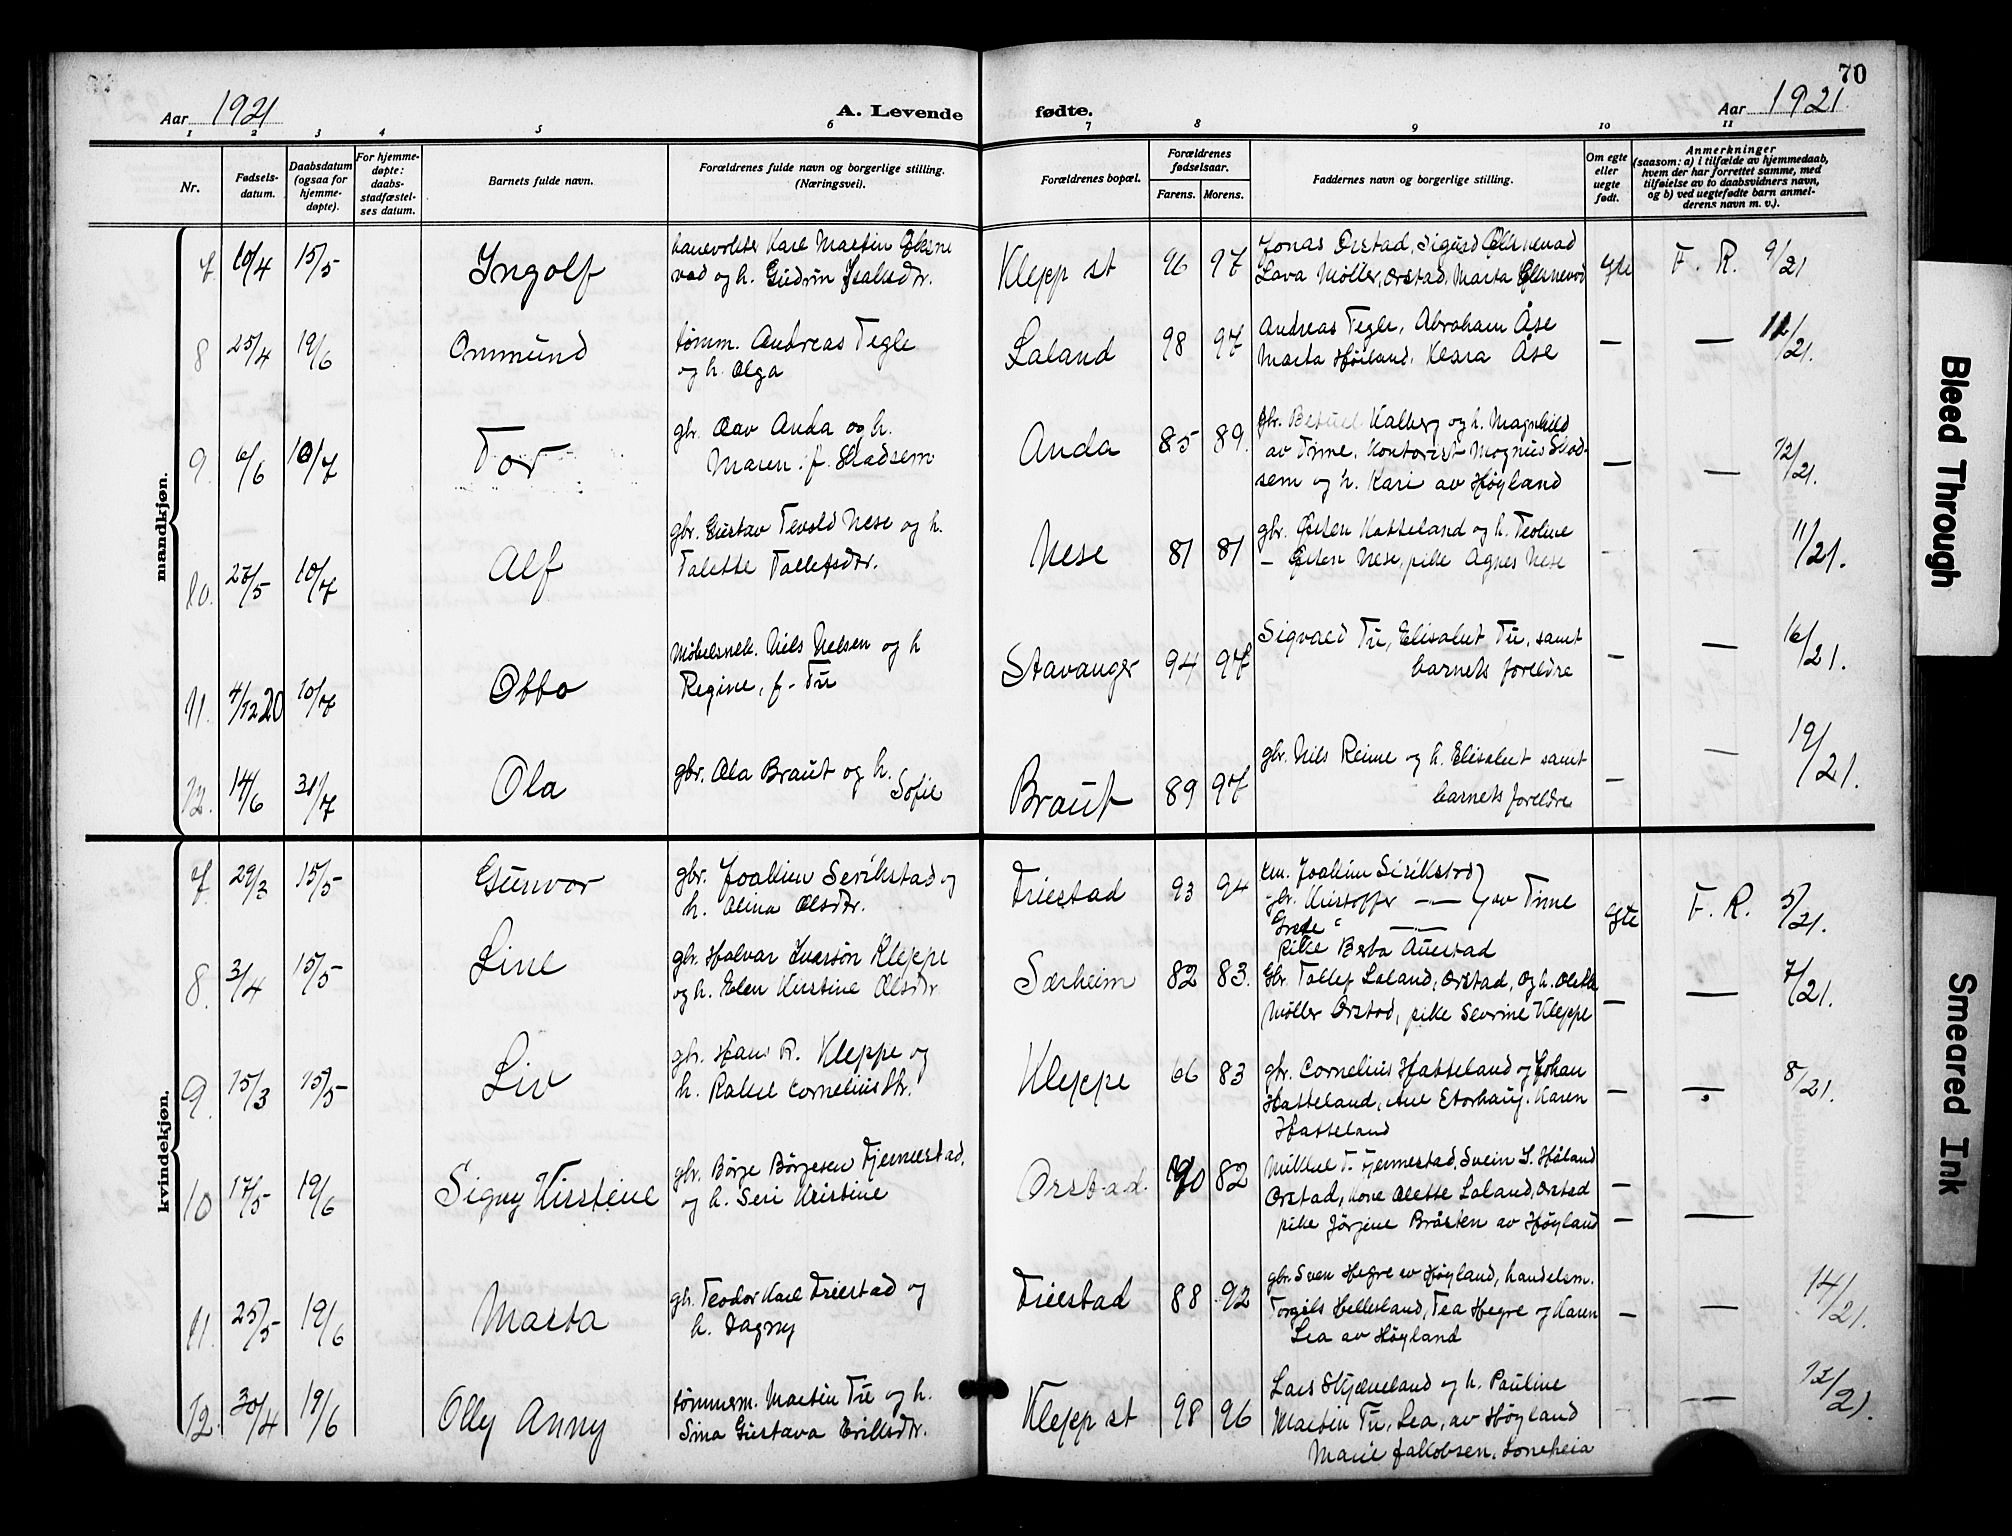 70
Aar 1921
A. Levende fødte.
Aar 1921
1 2 3 4 5 6 7 8 9 10 11
Nr.
Fødsels-
datum.
Daabsdatum
(ogsaa for
hjemme-
døpte).
For hjemme-
døpte:
daabs-
stadfæstel-
ses datum.
Barnets fulde navn.
Forældrenes fulde navn og borgerlige stilling.
(Næringsvei).
Forældrenes bopæl.
Forældrenes
fødselsaar.
Farens. Morens.
Faddernes navn og borgerlige stilling.
Om egte
eller
uegte
født.
Anmerkninger
(saasom: a) i tilfælde av hjemmedaab,
hvem der har forrettet samme, med
tilføielse av to daabsvidners navn,
og b) ved uegtefødte barn anmel-
derens navn m. v.).
mandkjøn.
7. 10/4 15/5 Ingolf
Karl Martin
og h. Gudrun
Klepp st 96 97
Jonas Orstad, Sigurd
Møller, Orstad, Marta
egte F. R. 9/21
8 25/4 19/6 Ommund
tømm. Andreas Tegle
og h. Olga
Laland 98 97
Andreas Tegle, Abraham Åse
Marta Høiland, Klara Åse
— — 11/21.
9. 6/6 10/7 Tor
gbr. Oav Anda og h.
Maren f. Skadsem
Anda 85 89.
gbr. Betuel Kalberg og h. Magnhild
av Time, Kontorist Magnus Skad-
sem og h. Kari av Høyland
— — 12/21.
10. 27/5 10/7 Alf
gbr. Gustav Tevold Nese og h.
Talette Tollefsdtr.
Nese 81 81
gbr. Østen Hatteland og h. Teoline
— Østen Nese, pike Agnes Nese
- - 11/21.
11. 4/12 20 10/7 Otto
Møbelsnek. Nils Nelsen og h
Regine, f. Tu
Stavanger 94 97
Sigvald Tu, Elisabet Tu, samt
barnets foreldre
— — 16/21.
12. 14/6 31/7 Ola
gbr. Ola Braut og h.
Sofie
Braut 89 97
gbr. Nils Reime og h. Elisabet samt
barnets foreldre
— — 19/21.
kvindekjøn.
7. 29/3 15/5 Gunvor
gbr. Joakim Serikstad og
h. Alma Olsdtr.
Friestad 93 94
em. Joakim Serikstad
gbr. Kristoffer — av Time
Grete " —
pike Berta Auestad
egte F. R. 5/21.
8. 3/4 15/5 Line
gbr. Halvar Ivarson Kleppe
og h. Elen Kirstine Olsdtr.
Særheim 82 83.
Gbr. Tollef Laland, Orstad, og h. Olette
Møller Orstad, pike Sevrine Kleppe
— — 7/21.
9. 15/3 15/5 Liv
gbr. Hans R. Kleppe og
h. Rakel Corneliusdtr.
Kleppe 66 83
gbr. Cornelius Hatteland og Johan
Hatteland, Storhaug. Karen
Hatteland
— — 8/21.
10 17/5 19/6 Signy Kirstine
gbr. Børge Børgesen Fjermestad,
og h. Seri Kristine
Orstad. 90 82
Mikkel T. Fjermestad, Svein S. Høland
Orstad, kone Olette Laland, Orstad
pike Jørgine Bråsten av Høyland
—
— —
11. 25/5 19/6 Marta
gbr. Teodor Karl Friestad og
h. Dagny
Friestad 88 92
gbr. Sven Hegre av Høyland, handelsm.
Torgils Helleland, Tea Hegre og Karen
Lea av Høyland
— — 14/21.
12. 30/4 19/6 Olly Anny
tømmerm. Martin Tu og h.
Sina Gustava Eriksdtr.
Klepp st 98 96
Lars Skjæveland og h. Pauline
Martin Tu, Lea, av Høyland
Marie Jakobsen,
- — 13/21.
Bleed Through
Smeared Ink